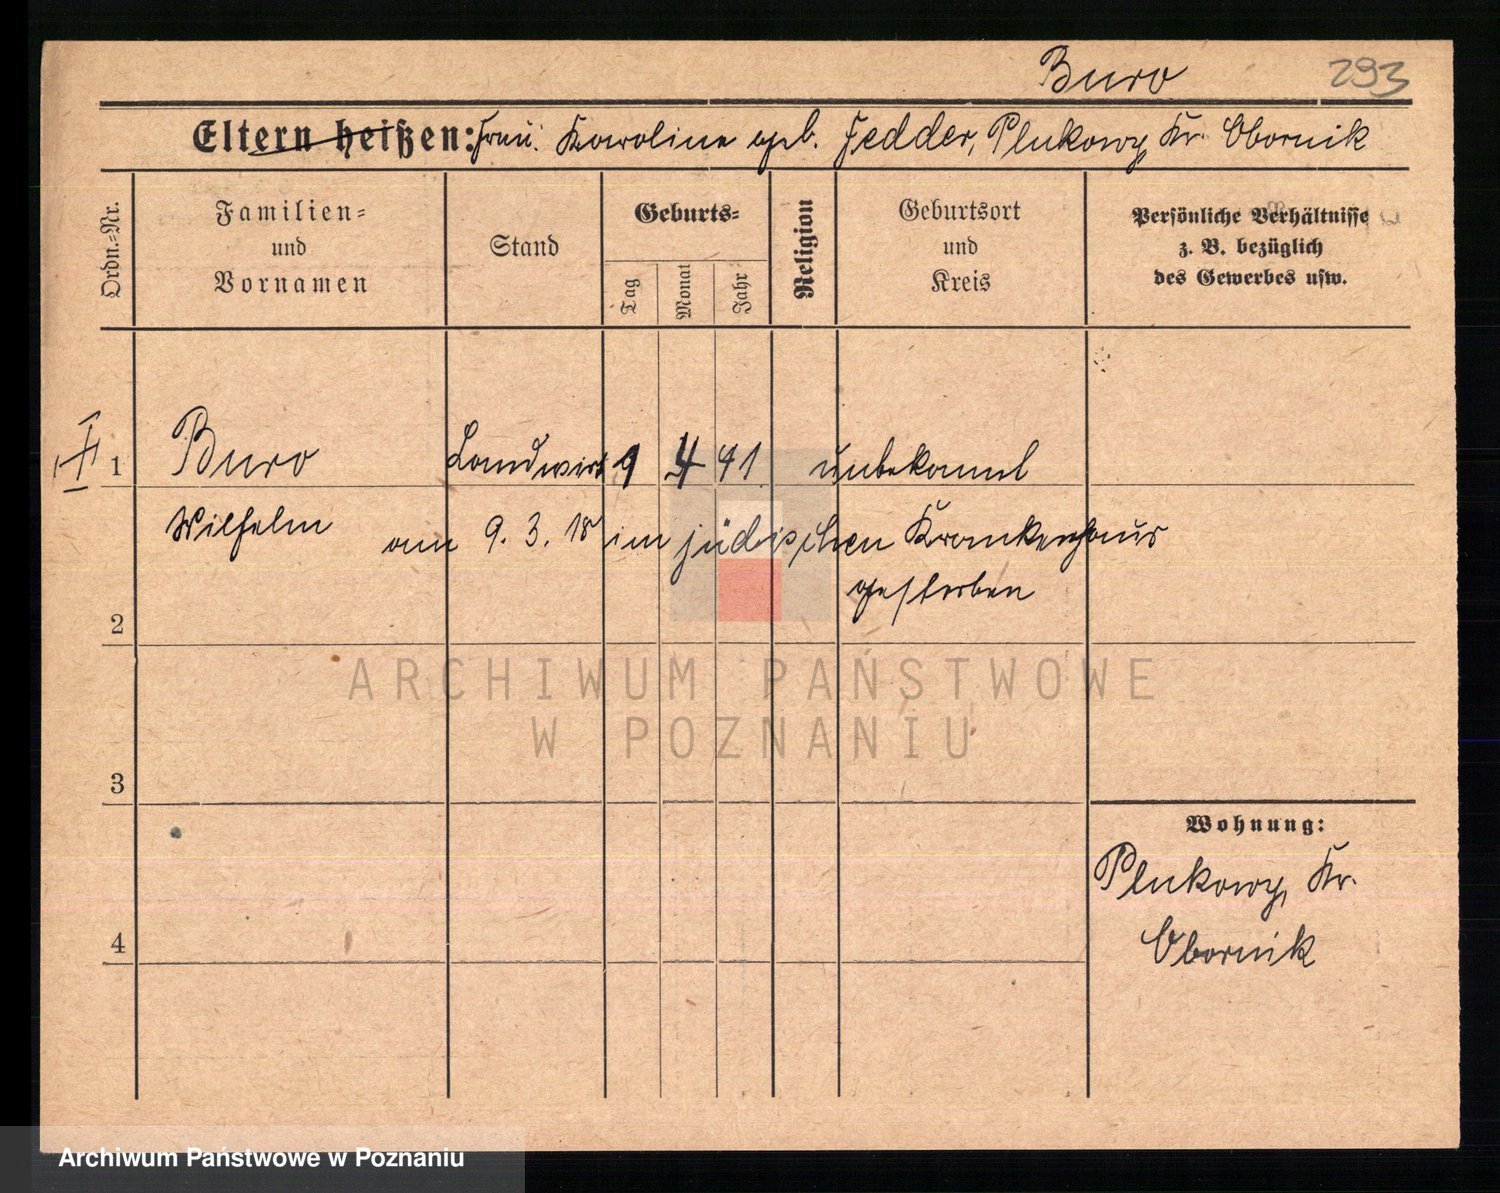 Buro 293
Eltern heißen: Frau: Karoline geb. Fedder, Plukowy Kr. Obornik
Ordn.-Nr.
Familien-
und
Vornamen
Stand
Geburts-
Tag
Monat
Jahr
Religion
Geburtsort
und
Kreis
Persönliche Verhältnisse
z. B. bezüglich
des Gewerbes usw.
1 Buro Landwirt 9 4 41 unbekannt
Wilhelm am 9. 3. 18 im jüdischen Krankenhaus
gestorben
2
3
4
Wohnung:
Plukowy, Kr.
Obornik
ARCHIWUM PAŃSTWOWE
W POZNANIU
Archiwum Państwowe w Poznaniu